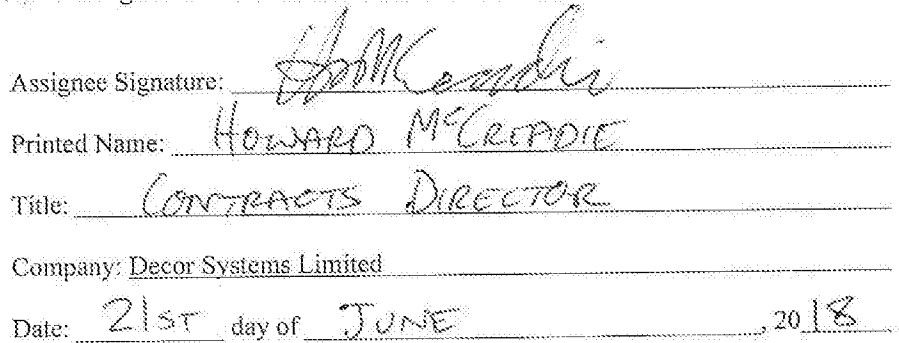 Assignee Signature: H McCreadie
Printed Name: HOWARD McCREADIE
Title: CONTRACTS DIRECTOR
Company: Decor Systems Limited
Date: 21ST day of JUNE, 2018